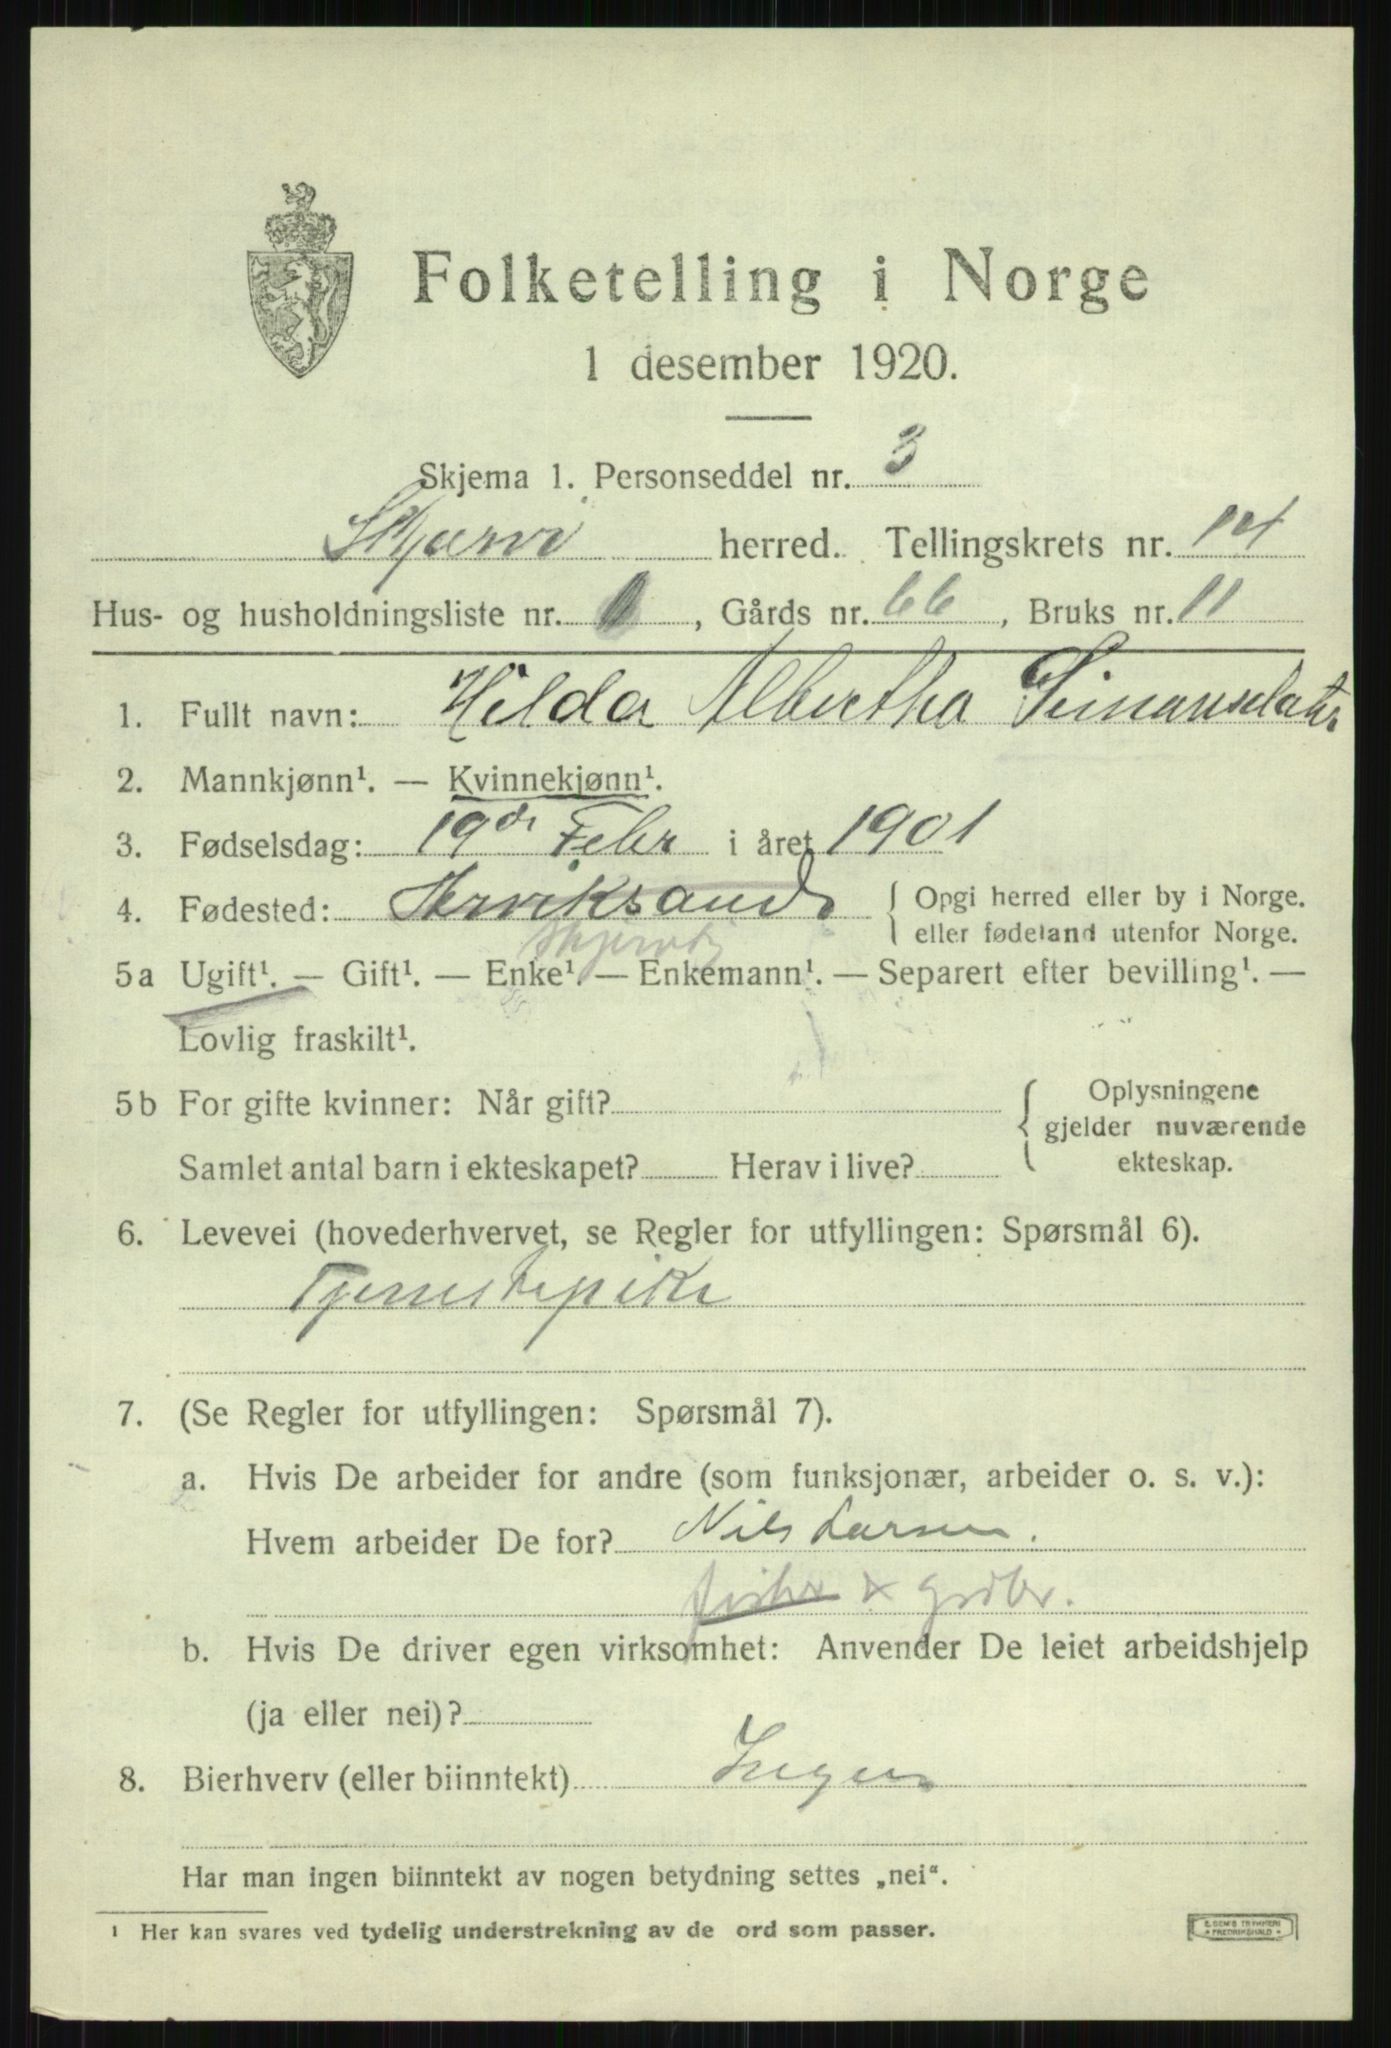 Folketelling i Norge
1 desember 1920.
Skjema 1. Personseddel nr. 3
Skjervø herred. Tellingskrets nr. 14
Hus- og husholdningsliste nr. , Gårds nr. 66, Bruks nr. 11
1. Fullt navn: Hilda Albertha Simonsdatr
2. Mannkjønn¹. — Kvinnekjønn¹.
3. Fødselsdag: 19de Febr i året 1901
4. Fødested: { Opgi herred eller by i Norge.
eller fødeland utenfor Norge.
5a Ugift¹. — Gift¹. — Enke¹. — Enkemann¹. — Separert efter bevilling¹. —
Lovlig fraskilt¹.
5b For gifte kvinner: Når gift? { Oplysningene
gjelder nuværende
Samlet antal barn i ekteskapet? Herav i live? ekteskap.
6. Levevei (hovederhvervet, se Regler for utfyllingen: Spørsmål 6).
Tjenestepike
7. (Se Regler for utfyllingen: Spørsmål 7).
a. Hvis De arbeider for andre (som funksjonær, arbeider o. s. v.):
Hvem arbeider De for? Nils Larsen.
fisker x grdbr.
b. Hvis De driver egen virksomhet: Anvender De leiet arbeidshjelp
(ja eller nei)?
8. Bierhverv (eller biinntekt) Ingen
Har man ingen biinntekt av nogen betydning settes „nei“.
¹ Her kan svares ved tydelig understrekning av de ord som passer.
E. SEM'S TRYKKERI
• FREDRIKSHALD •